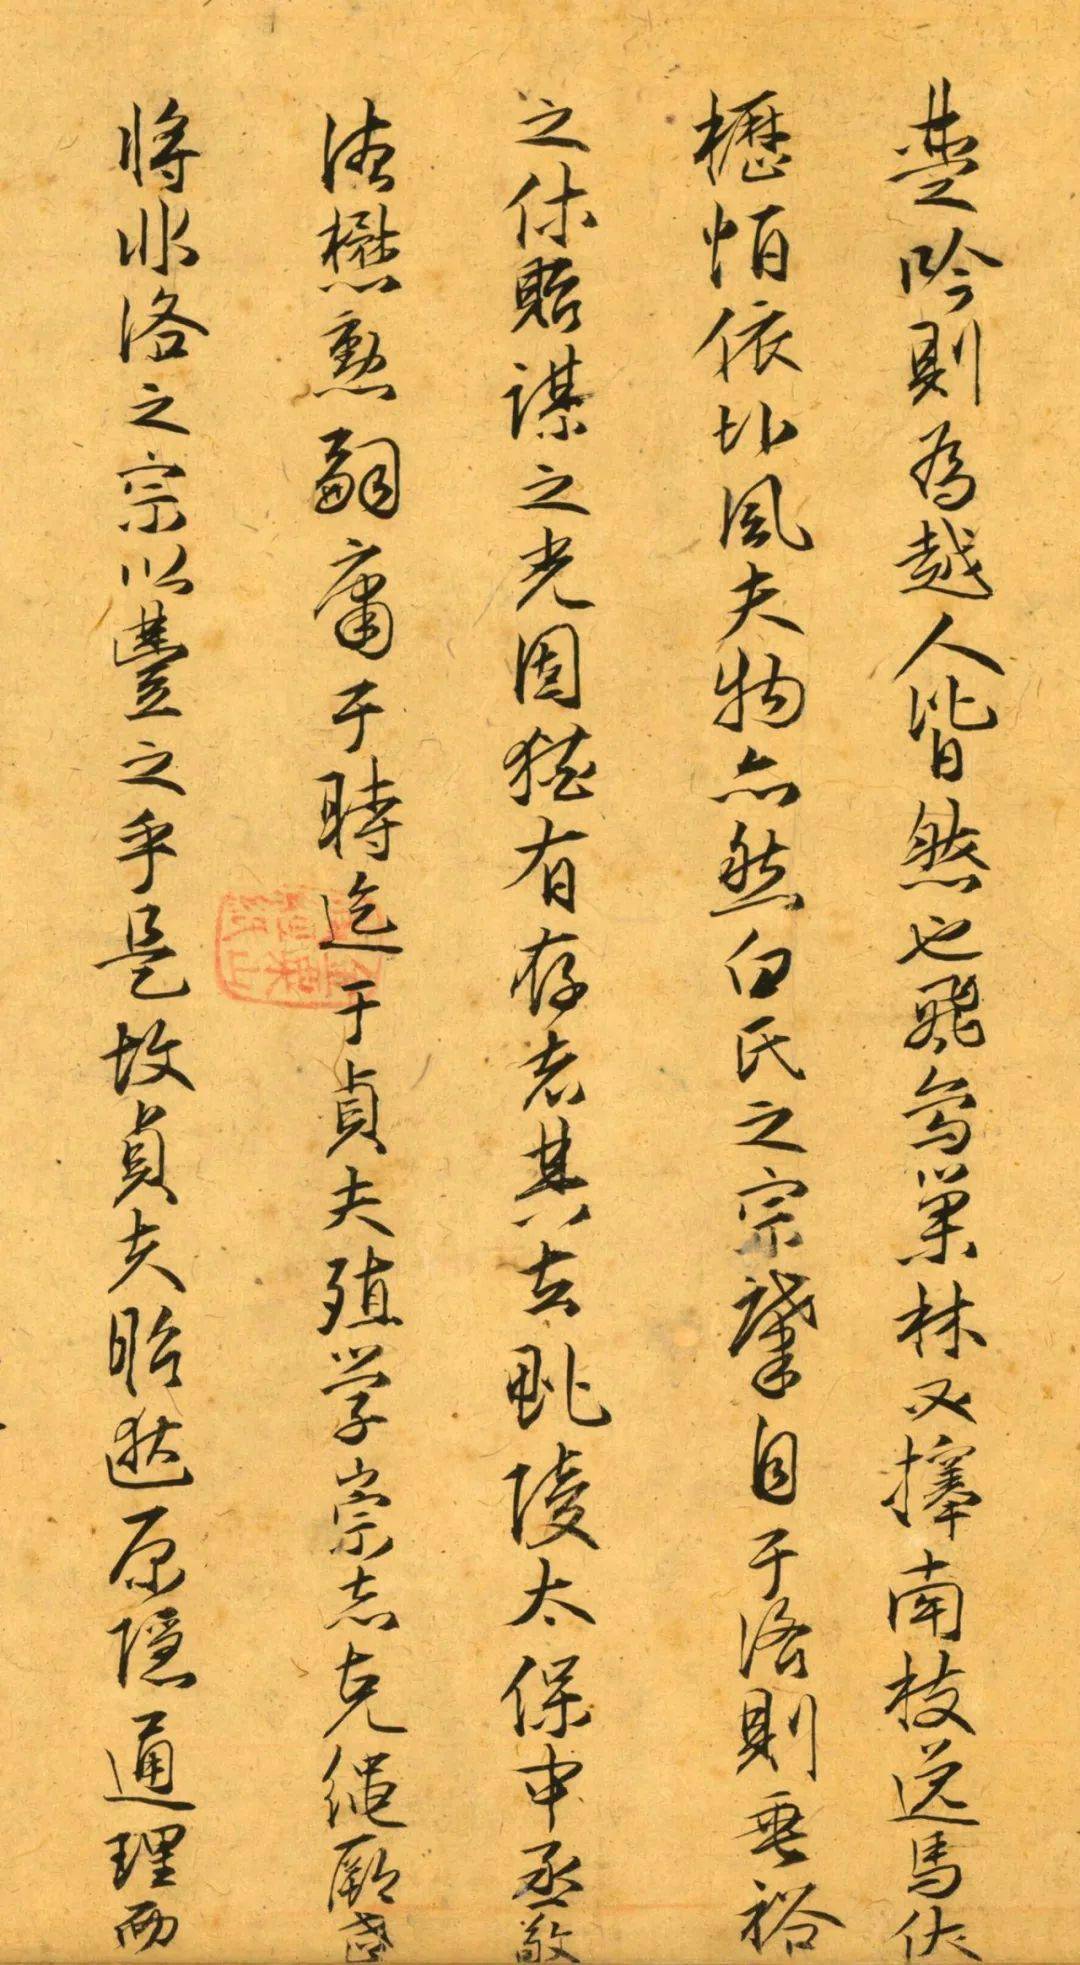 楚吟則為越人皆然也飛鳥巢林必擇南枝逸馬伏
櫪恒依北風夫物亦然白氏之宗肇自于洛則垂裕
之休貽謀之光固猶有存者其去毗陵太保中丞敬
德懋勳嗣庸于時迄于貞夫殖學崇志克繩厥世
將非洛之宗以豐之乎是故貞夫昭遡原隱通理而